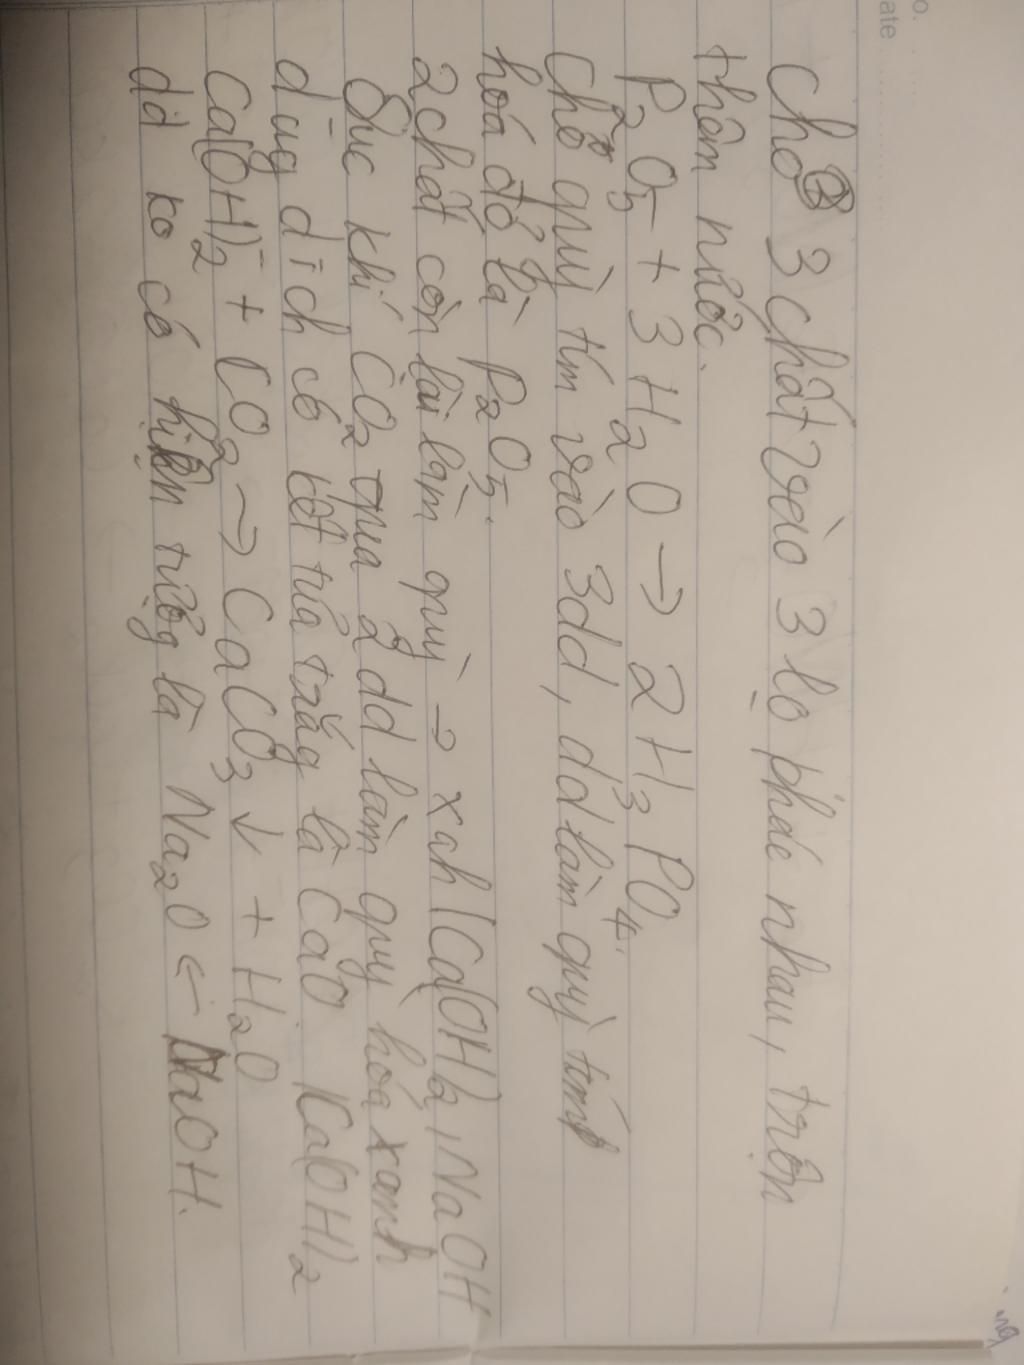 o.
ate
Cho 3 chất vào 3 lọ khác nhau, trộn
thêm nước.
P2O5 + 3H2O → 2H3PO4.
Cho quỳ tím vào 3dd, dd làm quỳ tím
hoá đỏ là P2O5.
2 chất còn lại làm quỳ → xah (Ca(OH)2, NaOH
Sục khí CO2 qua 2 dd làm quỳ hóa xanh
dug dịch có kết tủa trắg là CaO Ca(OH)2
Ca(OH)2 + CO2 → CaCO3 ↓ + H2O
dd ko có hiện tượg là Na2O ← NaOH.